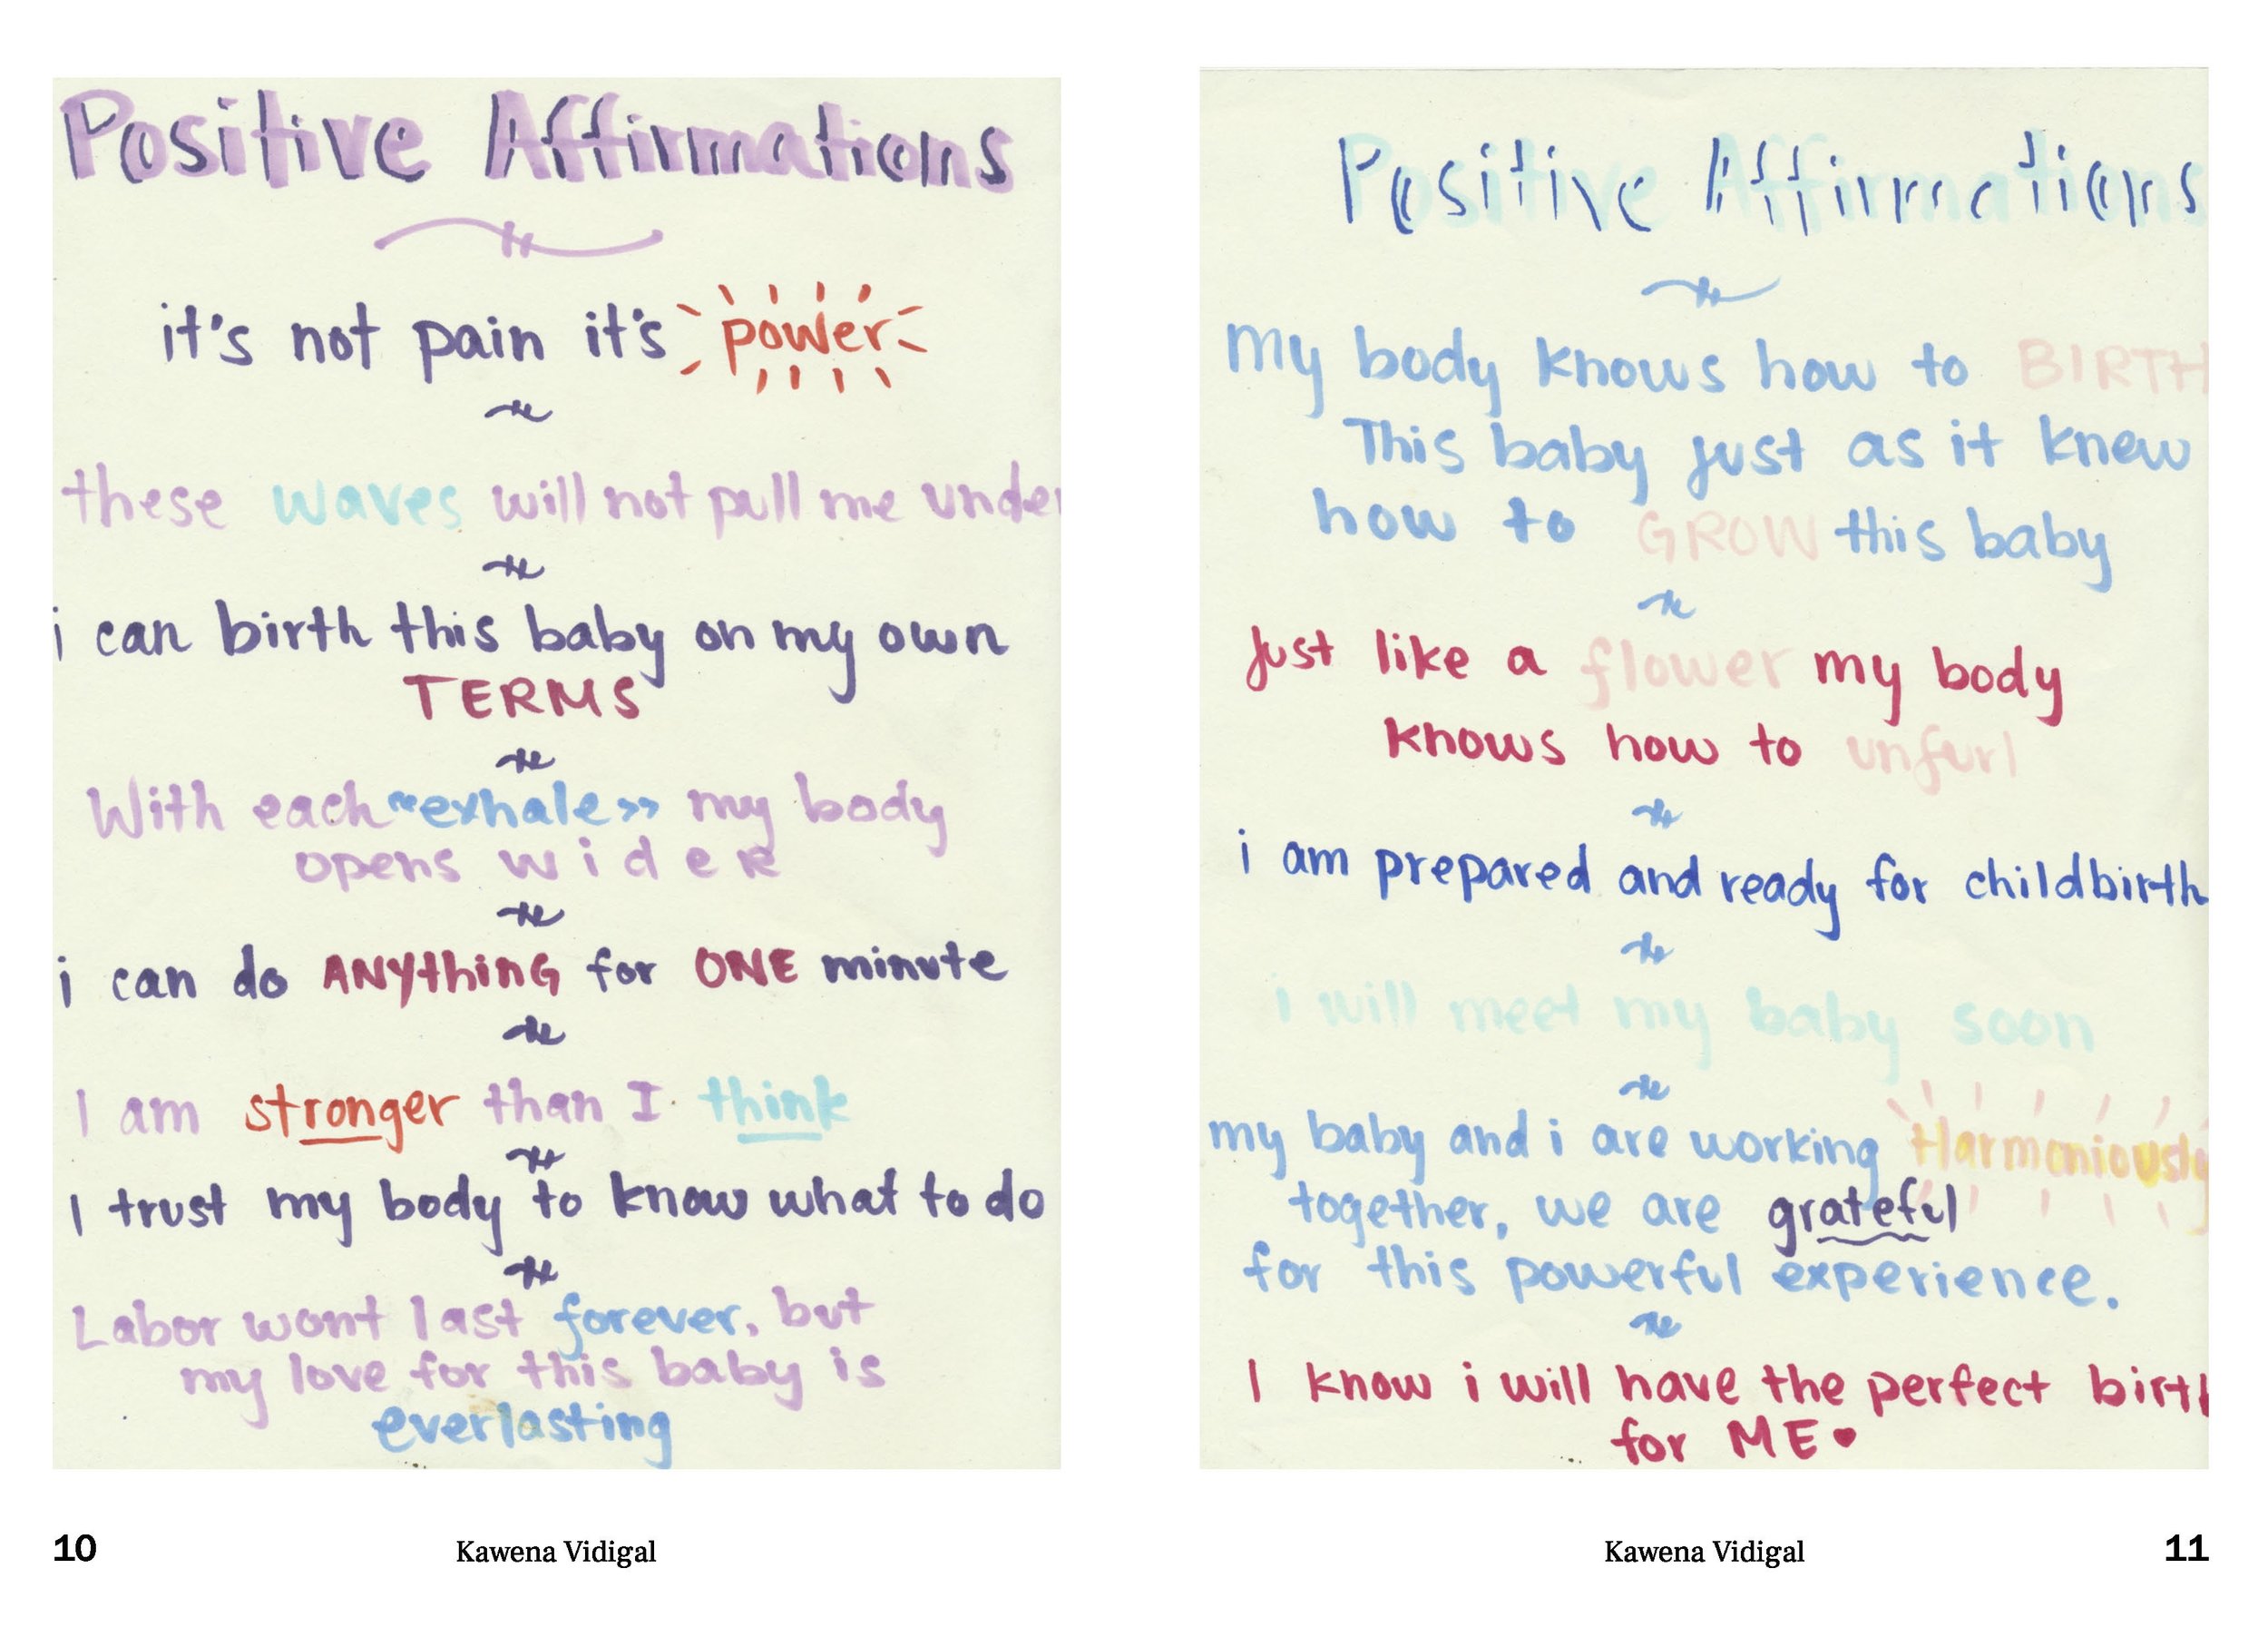 Positive Affirmations
it's not pain it's power
these waves will not pull me under
i can birth this baby on my own
TERMS
With each "exhale>> my body
opens w i d e R
i can do ANythinG for ONE minute
I am stronger than I think
I trust my body to know what to do
Labor wont last forever, but
my love for this baby is
everlasting
10
Kawena Vidigal
Positive Affirmations
my body knows how to BIRTH
This baby just as it knew
how to GROW this baby
Just like a flower my body
knows how to unfurl
i am prepared and ready for childbirth
i will meet my baby soon
my baby and i are working Harmoniously
together, we are grateful
for this powerful experience.
I know i will have the perfect birth
for ME
Kawena Vidigal
11